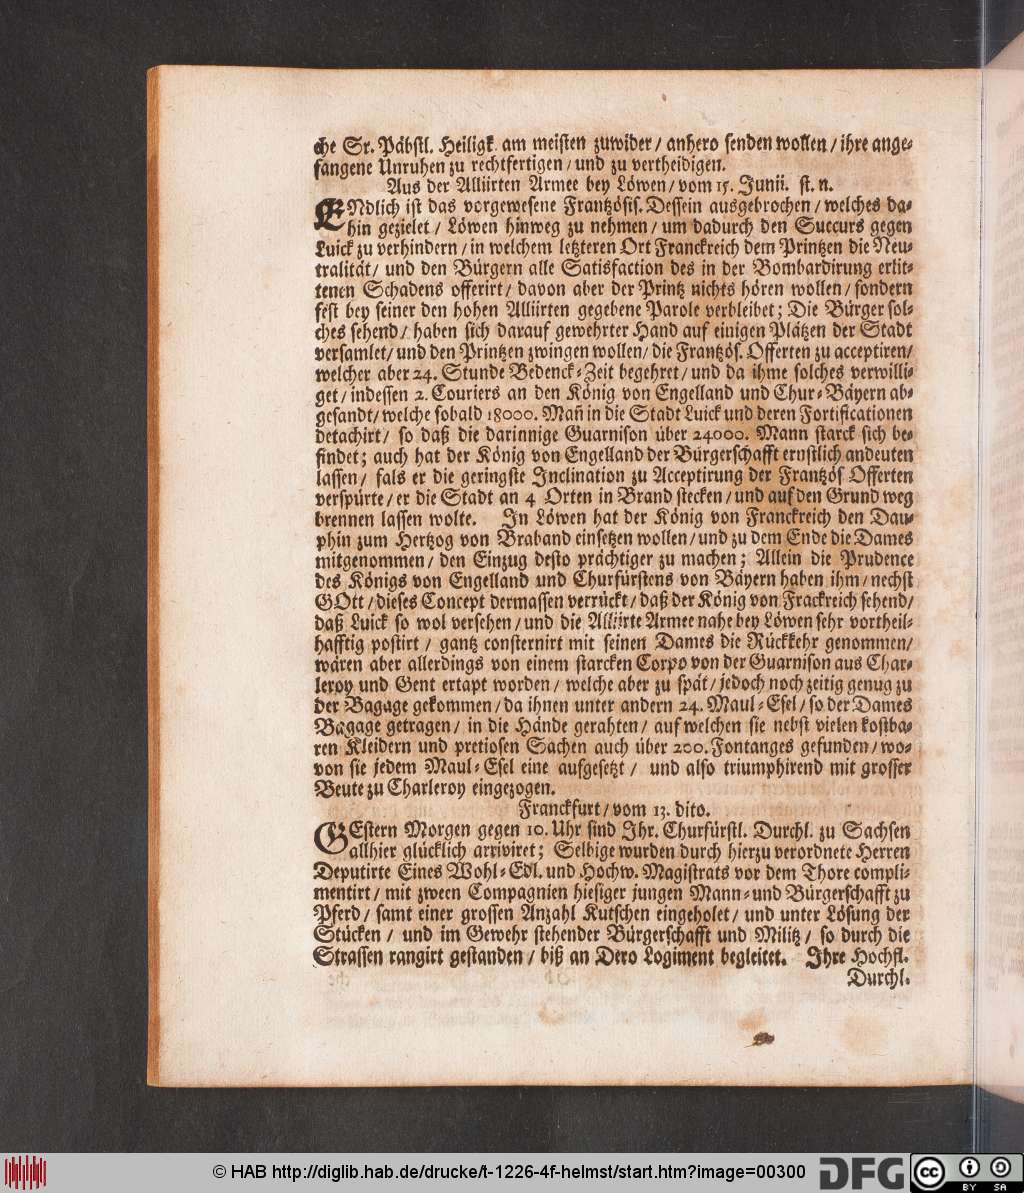 che Sr. Päbstl. Heiligk. am meisten zuwider / anhero senden wollen / ihre ange-
fangene Unruhen zu rechtfertigen / und zu vertheidigen.
Aus der Alliirten Armee bey Löwen / vom 15. Junii. st. n.
ENdlich ist das vorgewesene Frantzösis. Dessein ausgebrochen / welches da-
hin gezielet / Löwen hinweg zu nehmen / um dadurch den Succurs gegen
Luick zu verhindern / in welchem letzteren Ort Franckreich dem Printzen die Neu-
tralität / und den Bürgern alle Satisfaction des in der Bombardirung erlit-
tenen Schadens offerirt / davon aber der Printz nichts hören wollen / sondern
fest bey seiner den hohen Alliirten gegebene Parole verbleibet; Die Bürger sol-
ches sehend / haben sich darauf gewehrter Hand auf einigen Plätzen der Stadt
versamlet / und den Printzen zwingen wollen / die Frantzös. Offerten zu acceptiren /
welcher aber 24. Stunde Bedenck-Zeit begehret / und da ihme solches verwilli-
get / indessen 2. Couriers an den König von Engelland und Chur-Bäyern ab-
gesandt / welche sobald 18000. Mañ in die Stadt Luick und deren Fortificationen
detachirt / so daß die darinnige Guarnison über 24000. Mann starck sich be-
findet; auch hat der König von Engelland der Bürgerschafft ernstlich andeuten
lassen / fals er die geringste Inclination zu Acceptirung der Frantzös Offerten
verspürte / er die Stadt an 4 Orten in Brand stecken / und auf den Grund weg
brennen lassen wolte. In Löwen hat der König von Franckreich den Dau-
phin zum Hertzog von Braband einsetzen wollen / und zu dem Ende die Dames
mitgenommen / den Einzug desto prächtiger zu machen; Allein die Prudence
des Königs von Engelland und Churfürstens von Bäyern haben ihm / nechst
GOtt / dieses Concept dermassen verrückt / daß der König von Frackreich sehend /
daß Luick so wol versehen / und die Alliirte Armee nahe bey Löwen sehr vortheil-
hafftig postirt / gantz consternirt mit seinen Dames die Rückkehr genommen /
wären aber allerdings von einem starcken Corpo von der Guarnison aus Char-
leroy und Gent ertapt worden / welche aber zu spät / jedoch noch zeitig genug zu
der Bagage gekommen / da ihnen unter andern 24. Maul-Esel / so der Dames
Bagage getragen / in die Hände gerahten / auf welchen sie nebst vielen kostba-
ren Kleidern und pretiosen Sachen auch über 200. Fontanges gefunden / wo-
von sie jedem Maul-Esel eine aufgesetzt / und also triumphirend mit grosser
Beute zu Charleroy eingezogen.
Franckfurt / vom 13. dito.
GEstern Morgen gegen 10. Uhr sind Ihr. Churfürstl. Durchl. zu Sachsen
allhier glücklich arriviret; Selbige wurden durch hierzu verordnete Herren
Deputirte Eines Wohl-Edl. und Hochw. Magistrats vor dem Thore compli-
mentirt / mit zween Compagnien hiesiger jungen Mann- und Bürgerschafft zu
Pferd / samt einer grossen Anzahl Kutschen eingeholet / und unter Lösung der
Stücken / und im Gewehr stehender Bürgerschafft und Militz / so durch die
Strassen rangirt gestanden / biß an Dero Logiment begleitet. Ihre Hochfl.
Durchl.
© HAB http://diglib.hab.de/drucke/t-1226-4f-helmst/start.htm?image=00300
DFG
cc BY SA